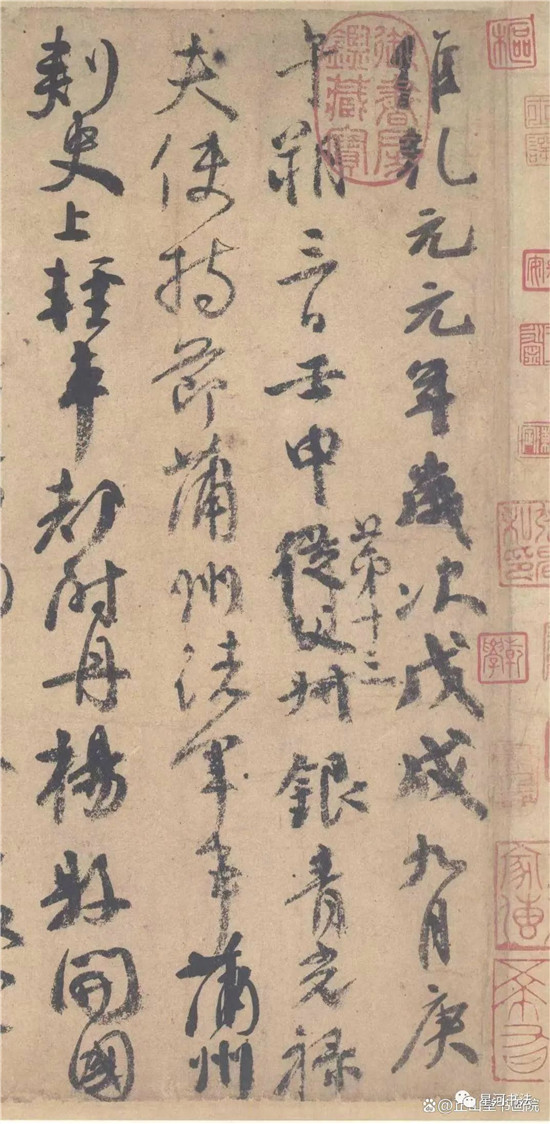 維乾元元年歲次戊戌九月庚
午朔三日壬申從父第十三叔銀青光祿
夫使持節蒲州諸軍事蒲州
刺史上輕車都尉丹楊縣開國
御書房鑑藏寶
樞
乾學
星河书法